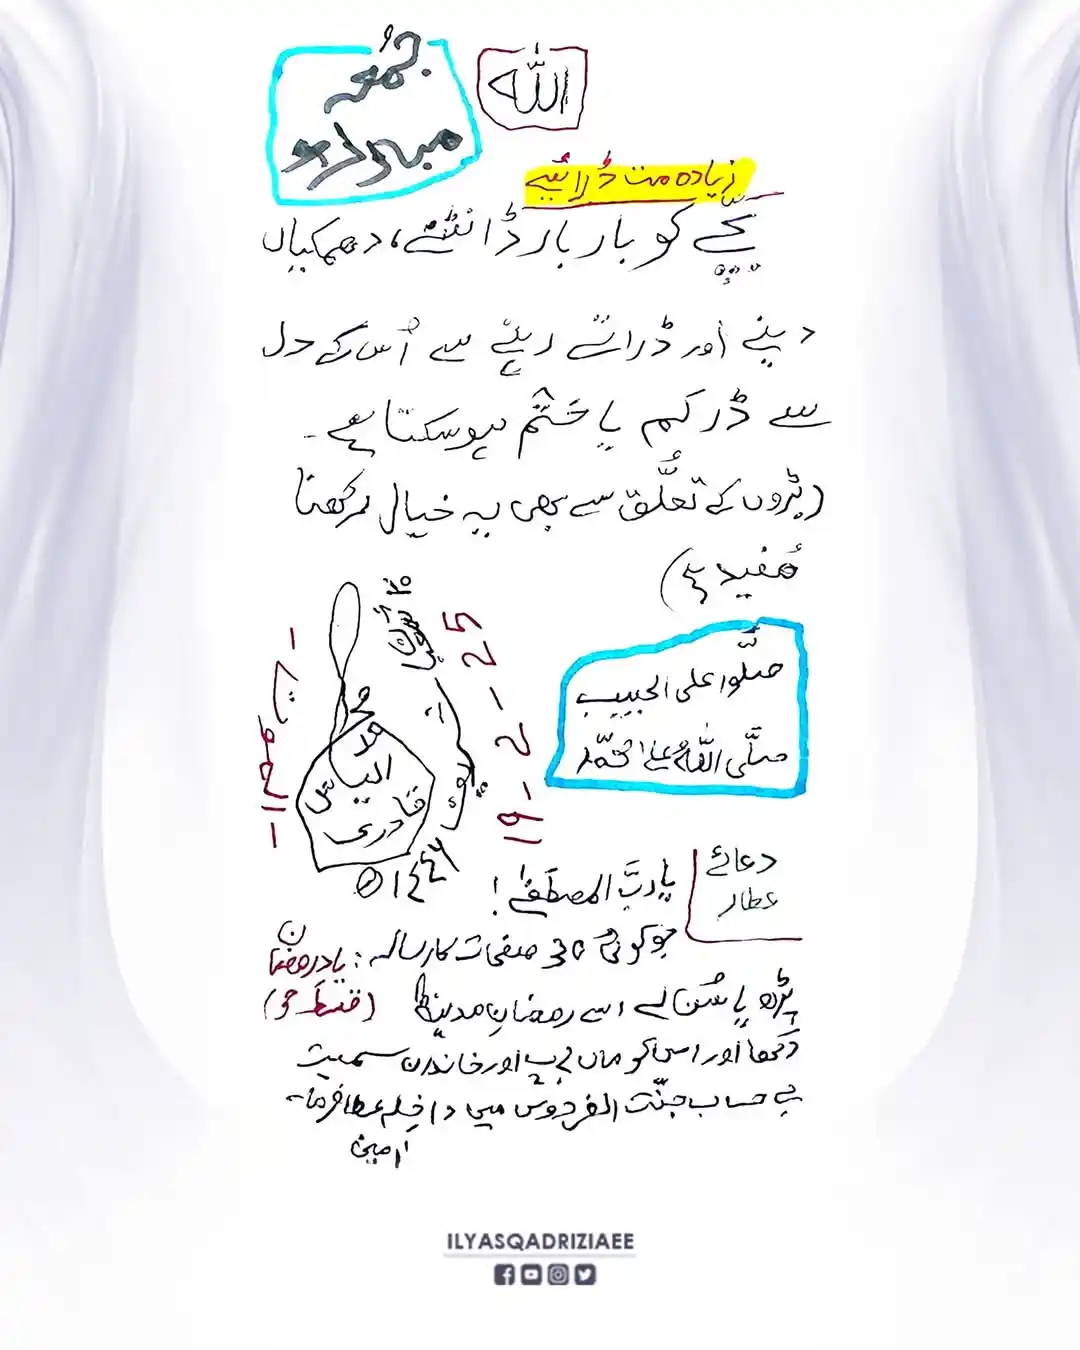 جمعہ
مبارک ہو
اللہ
زیادہ مت ڈرائیے
بچّے کو بار بار ڈانٹنے، دھمکیاں
دینے اور ڈراتے رہنے سے اُس کے دل
سے ڈر کم یا ختم ہو سکتا ہے۔
(بڑوں کے تعلُّق سے بھی یہ خیال رکھنا
مُفید ہے)
صلّوا علی الحبیب
صلَّی اللہ علیٰ محمّد
محمد
الیاس
قادری
۲۰
شعبان
۱۴۴۶
19-2-25
دعائے
عطار
یا ربَّ المصطفےٰ!
جو کوئی 30 صفحات کا رسالہ: یادِ رمضان
پڑھ یا سُن لے اسے رمضانِ مدینہ (قسط
دکھا اور اس کو ماں باپ اور خاندان سمیت
بے حساب جنّت الفردوس میں داخلہ عطا فرما۔
اٰمین
ILYASQADRIZIAEE